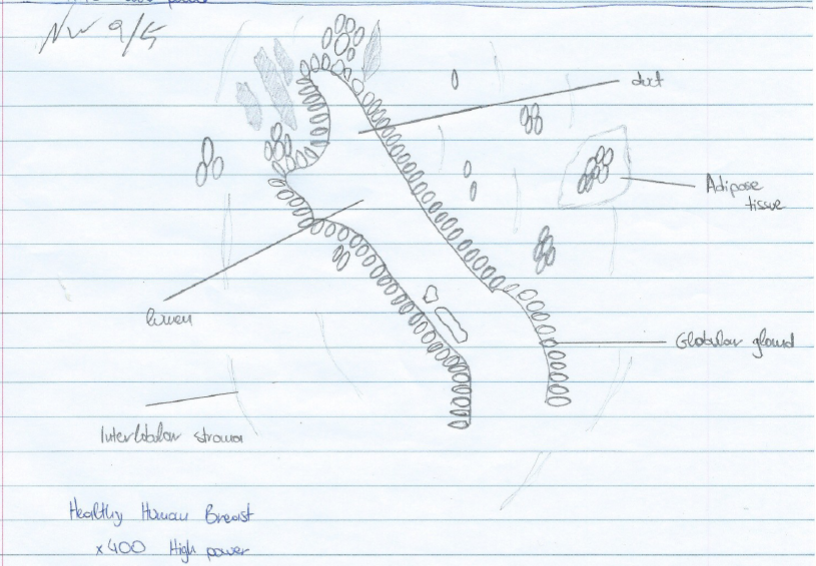 NW 9/5
duct
Adipose
tissue
lumen
Globular gland
Interlobular stroma
Healthy Human Breast
x400 High power